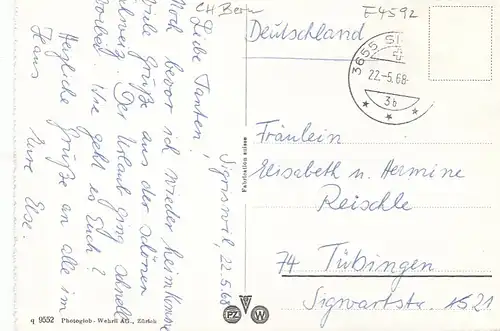 CH Bern
E4592
Deutschland
3655 SI
22.-5.68-
3b
Sigriswil, 22.5.68
Liebe Tanten,
Noch bevor ich wieder heimkomme
viele Grüße aus der schönen
Schweiz. Der Urlaub ging schnell
vorbei. Wie geht es Euch?
Herzliche Grüße an alle im
Haus
Eure Else.
Fräulein
Elisabeth u. Hermine
Reischle
74 Tübingen
Sigwartstr.
Fabrication suisse
q 9552 Photoglob-Wehrli AG., Zürich
PZ W